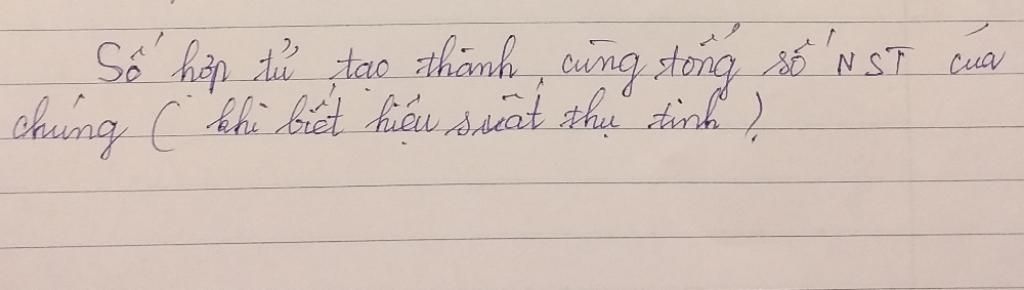 Số hợp tử tạo thành, cùng tổng số NST của
chúng (khi biết hiệu suất thụ tinh)